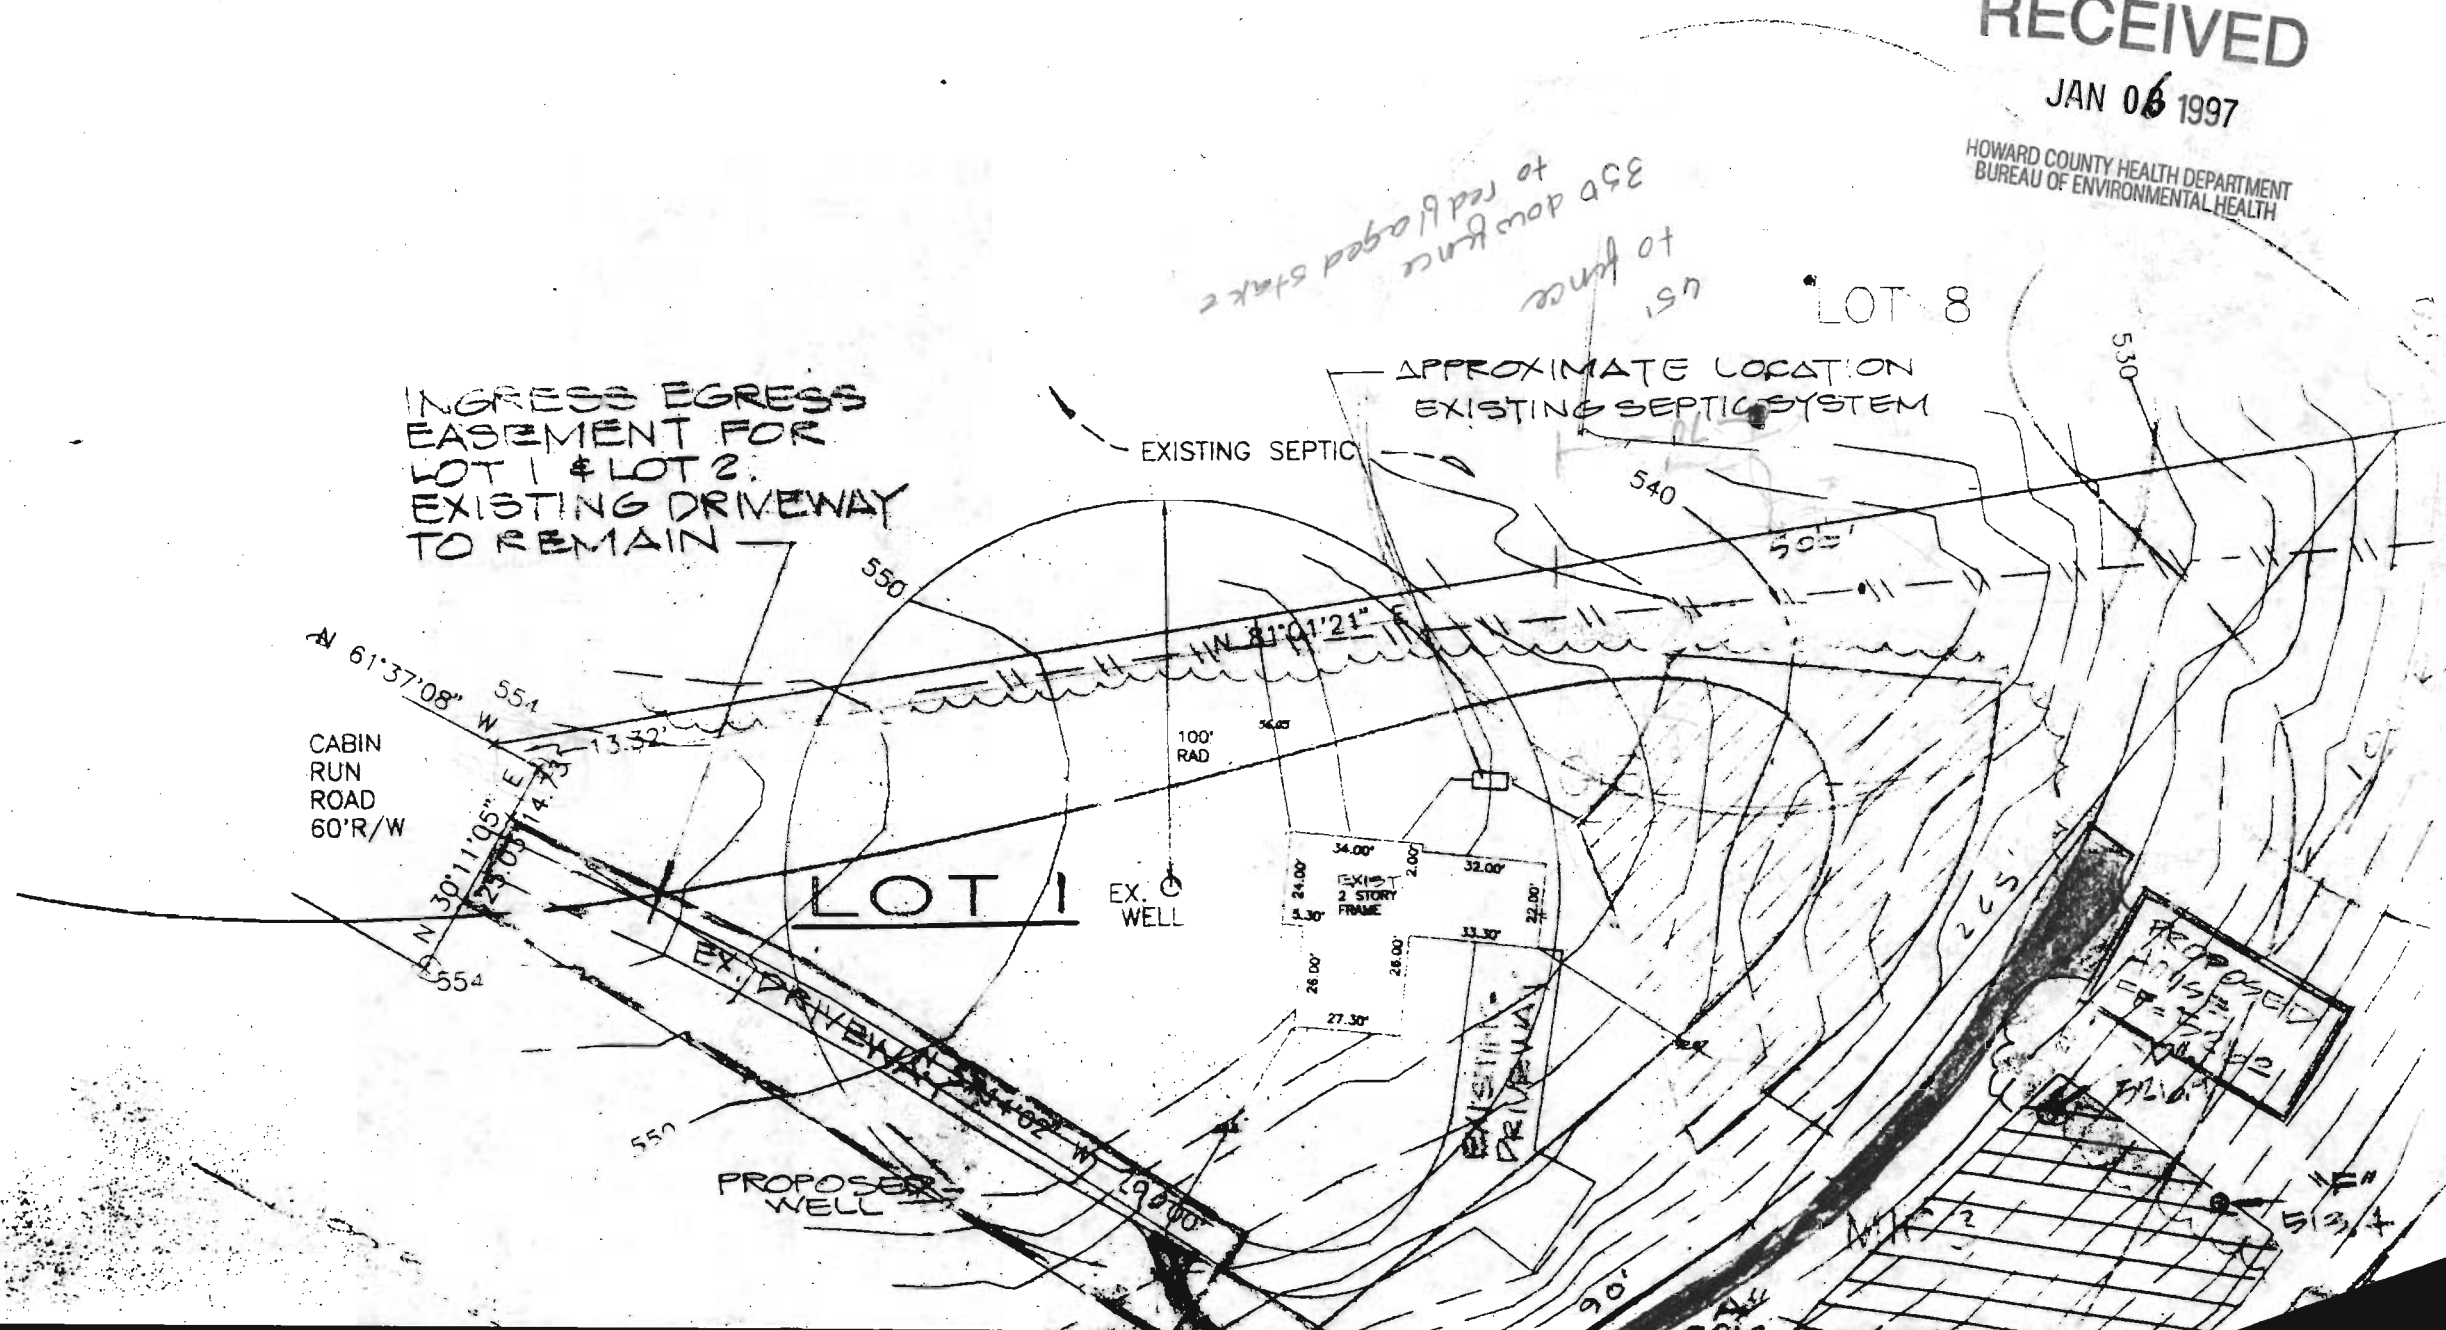 RECEIVED
JAN 06 1997
HOWARD COUNTY HEALTH DEPARTMENT
BUREAU OF ENVIRONMENTAL HEALTH
350 down fence
to redflagged stake
45'
to fence
LOT 8
APPROXIMATE LOCATION
EXISTING SEPTIC SYSTEM
530
INGRESS EGRESS
EASEMENT FOR
LOT 1 & LOT 2.
EXISTING DRIVEWAY
TO REMAIN
EXISTING SEPTIC
540
505'
550
N 81°01'21" E
N 61°37'08" W
554
13.32'
14.73'
CABIN
RUN
ROAD
60'R/W
N 30°11'05" E
25.03'
554
100'
RAD
56.05
LOT 1
EX.
WELL
34.00'
2.00'
32.00'
24.00'
EXIST
2 STORY
FRAME
5.30'
22.00'
33.30'
26.00'
26.00'
27.30'
EX. DRIVEWAY
EXISTING
DRIVEWAY
265'
PROPOSED
550
290.00'
PROPOSED
WELL
"F"
90'